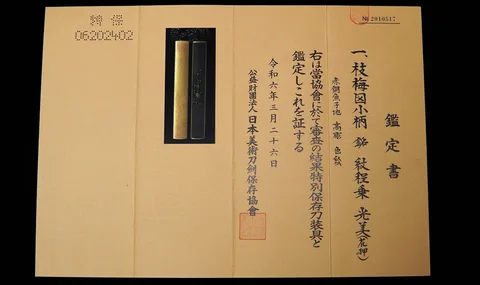 № 2010517
鑑定書
一、枝梅図小柄 銘 紋程乗 光美(花押)
赤銅魚子地 高彫 色絵
右は當協會に於て審査の結果特別保存刀装具と
鑑定しこれを証する
令和六年三月二十六日
公益財團法人 日本美術刀剣保存協會
特保
06202402